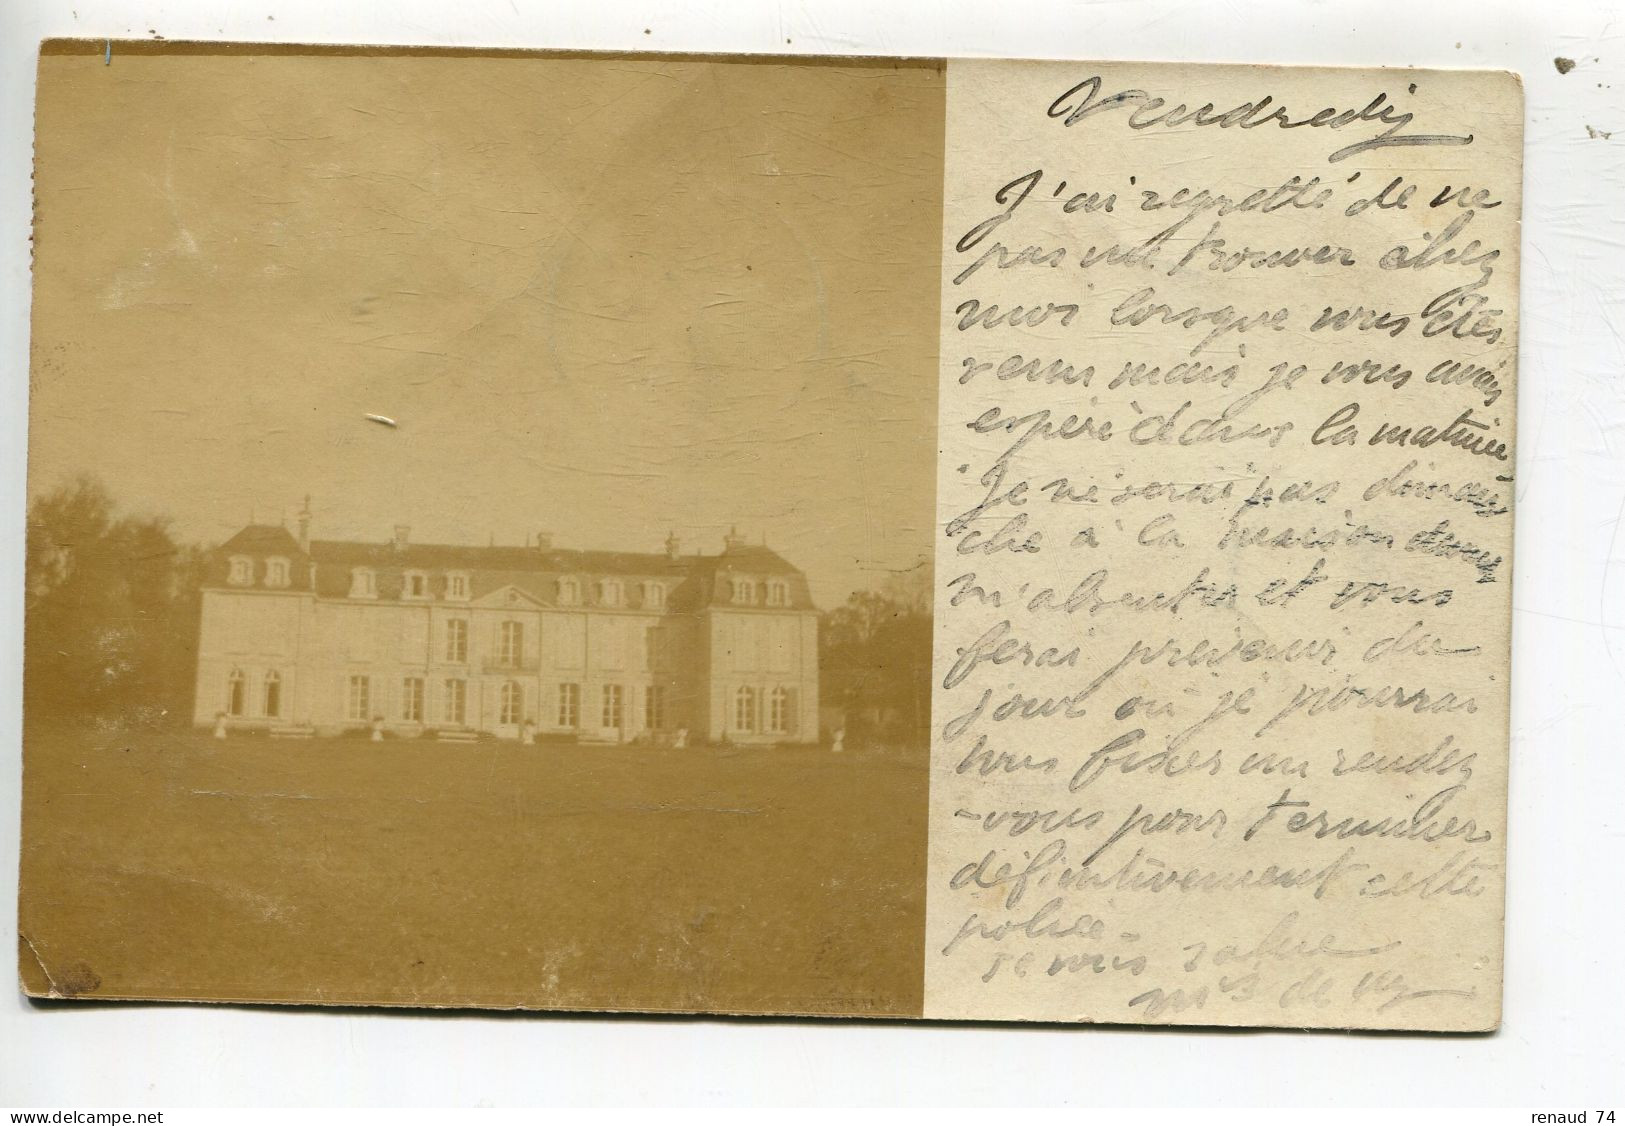 Vendredi
J'ai regretté de ne
pas me trouver chez
moi lorsque vous êtes
venu mais je vous avais
espéré dans la matinée
Je ne serai pas diman
che à la maison devant
m'absenter et vous
ferai prévenir du
jour où je pourrai
vous fixer un rendez
-vous pour terminer
définitivement cette
police -
Je vous salue
Mis de
delcampe.net
renaud 74